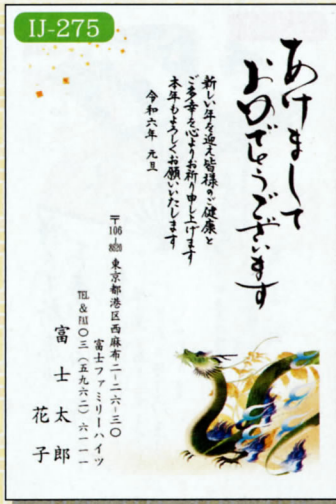 IJ-275
あけまして
おめでとうございます
新しい年を迎え皆様のご健康と
ご多幸を心よりお祈り申し上げます
本年もよろしくお願いいたします
令和六年 元旦
〒106-8620 東京都港区西麻布二-二六-三〇
富士ファミリーハイツ
TEL&FAX〇三(五九六二)六一一一
富士太郎
花子